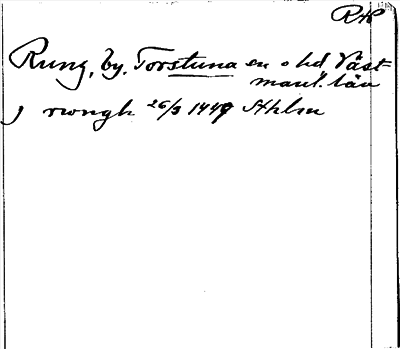 RHP
Rung, by. Torstuna sn o hd Väst-
manl. län
J rwngh 26/3 1449 Sthlm